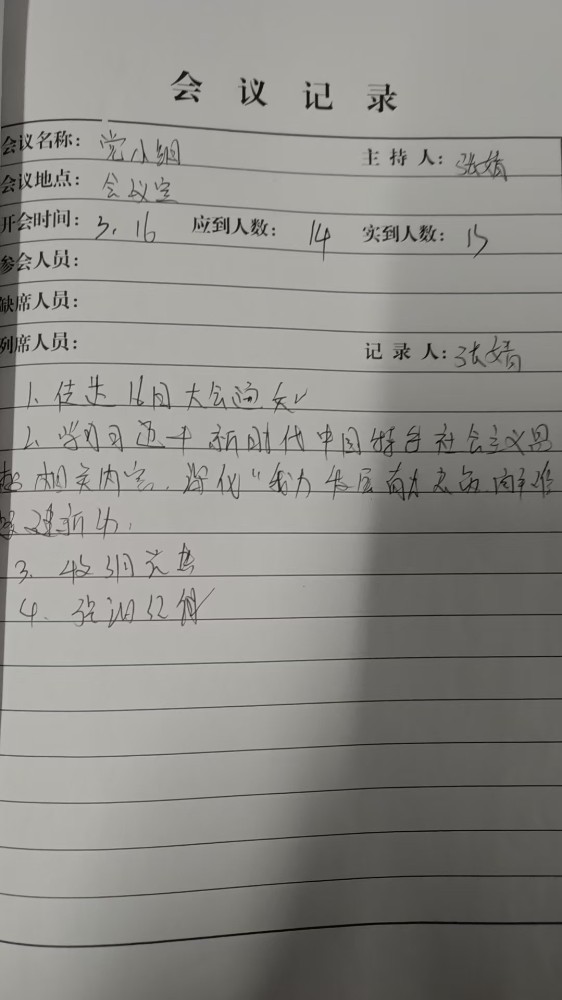 会议记录
会议名称： 党小组 主持人： 张婧
会议地点： 会议室
开会时间： 3.16 应到人数： 14 实到人数： 13
参会人员：
缺席人员：
列席人员： 记录人： 张婧
1. 传达 16日 大会通知
2. 学习习近平新时代中国特色社会主义思
想相关内容，深化"我为发展
建新功.
3. 收
4.